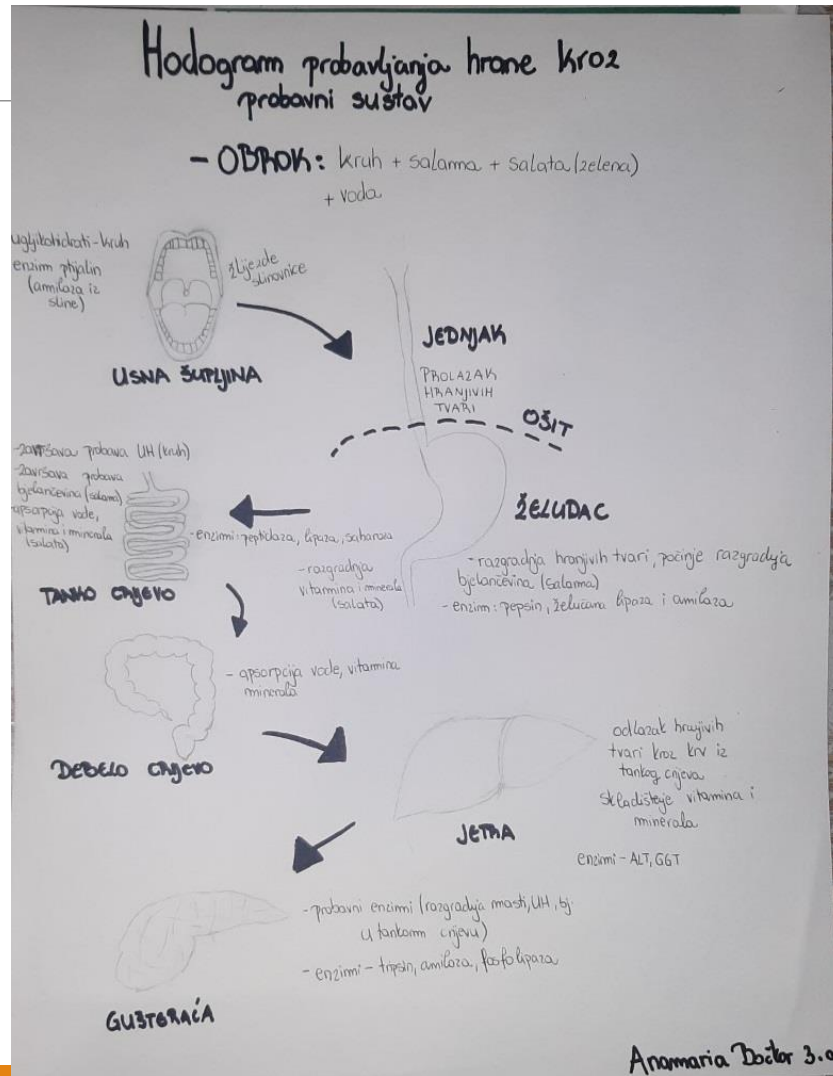 Hodogram probavljanja hrane kroz
probavni sustav
- OBROK: kruh + salama + salata (zelena)
+ voda
ugljikohidrati-kruh
enzim ptijalin
(amilaza iz
sline)
žlijezde
slinovnice
USNA ŠUPLJINA
JEDNJAK
PROLAZAK
HRANJIVIH
TVARI
OŠIT
ŽELUDAC
-razgradnja hranjivih tvari, počinje razgradnja
bjelančevina (salama)
-enzim: pepsin, želučana lipaza i amilaza
-završava probava UH (kruh)
-završava probava
bjelančevina (salama)
-apsorpcija vode,
vitamina i minerala
(salata)
-enzimi: peptidaza, lipaza, saharaza
-razgradnja
vitamina i minerala
(salata)
TANKO CRIJEVO
- apsorpcija vode, vitamina
minerala
DEBELO CRIJEVO
odlazak hranjivih
tvari kroz krv iz
tankog crijeva
skladištenje vitamina i
minerala
enzimi - ALT, GGT
JETRA
-probavni enzimi (razgradnja masti, UH, bj.
u tankom crijevu)
- enzimi - tripsin, amilaza, fosfolipaza
GUŠTERAĆA
Anamaria Doctor 3.a